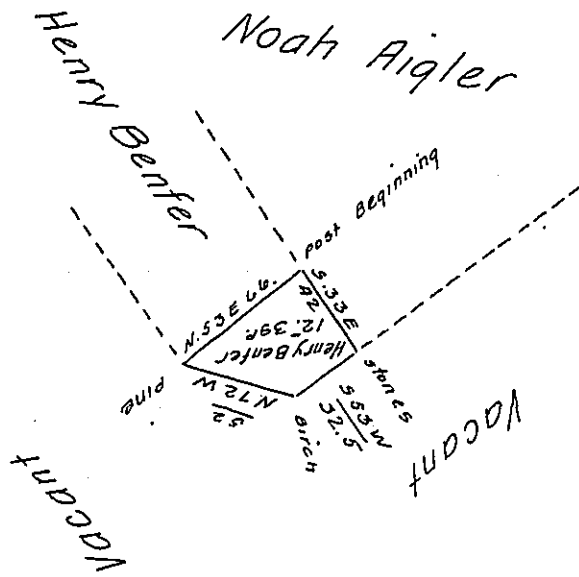 Noah Aigler
Henry Benfer
post Beginning
S. 33 E
42
N. 53 E 66.
Henry Benfer
12" 39P.
stones
S 53 W
32.5
Birch
N. 72 W
52
Pine
Vacant
Vacant